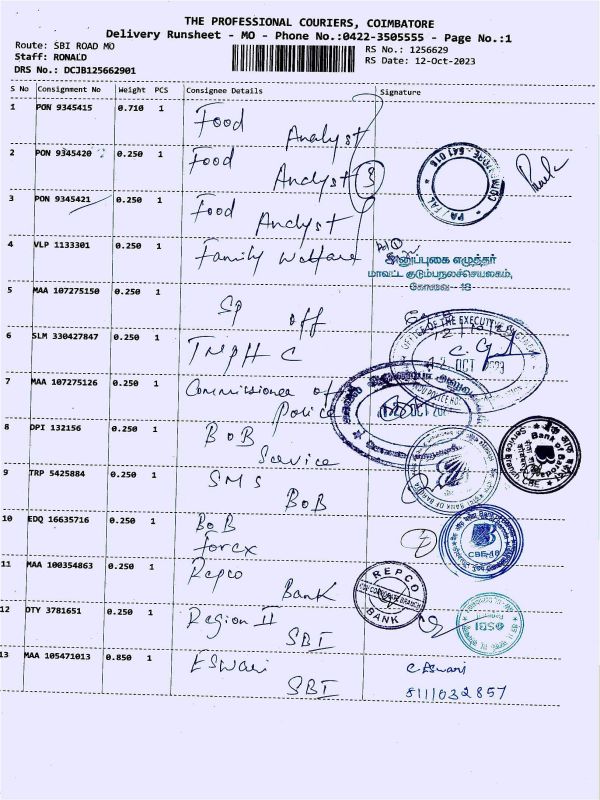 THE PROFESSIONAL COURIERS, COIMBATORE
Delivery Runsheet - MO - Phone No.:0422-3505555 - Page No.:1
Route: SBI ROAD MO
RS No.: 1256629
Staff: RONALD
RS Date: 12-Oct-2023
DRS No.: DCJB125662901
S No Consignment No Weight PCS Consignee Details Signature
1 PON 9345415 0.710 1 Food Analyst
2 PON 9345420 0.250 1 Food Analyst 3
3 PON 9345421 0.250 1 Food Analyst
4 VLP 1133301 0.250 1 Family Welfare
அனுப்புகை எழுத்தர்
மாவட்ட குடும்பநலச்செயலகம்,
கோவை-18
5 MAA 107275150 0.250 1 SP off
6 SLM 330427847 0.250 1 TNPHC
OFFICE OF THE EXECUTIVE
OCT
7 MAA 107275126 0.250 1 Commissioner of Police
OCT
8 DPI 132156 0.250 1 BOB Service
Bank of Baroda
Service Branch CBE
9 TRP 5425884 0.250 1 SMS BOB
10 EDQ 16635716 0.250 1 BOB forex
11 MAA 100354863 0.250 1 Repco Bank
REPCO
BANK
12 DTY 3781651 0.250 1 Region II SBI
SBI
13 MAA 105471013 0.850 1 ESwari SBI
C. ESwari
8111032857